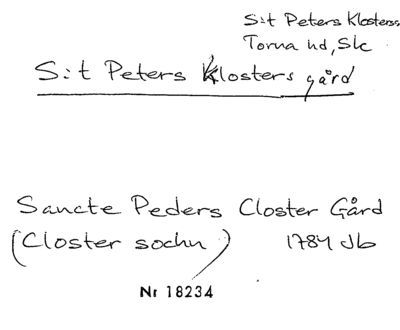 S:t Peters Klosters
Torna hd, Sk
S:t Peters Klosters gård
Sancte Peders Closter Gård
(Closter sochn) 1784 Jb
Nr 18234